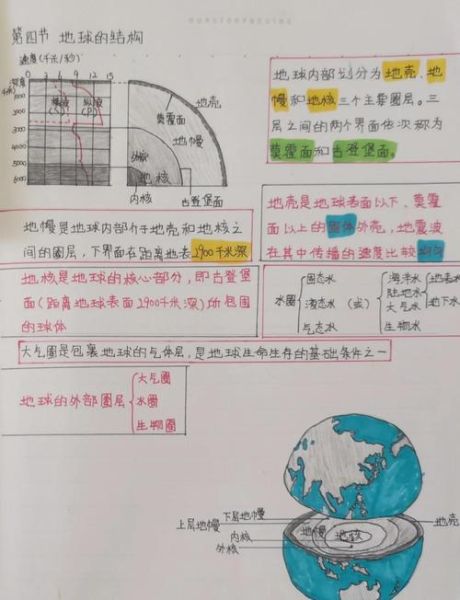 第四节 地球的结构
速度(千米/秒)
0 3 6 9 12 15
深度
1000
2000
3000
4000
5000
6000
横波
(S)
纵波
(P)
地壳
莫霍面
地幔
外核
地核
内核
古登堡面
地球内部划分为地壳、地
幔和地核三个主要圈层。三
层之间的两个界面依次称为
莫霍面和古登堡面。
地幔是地球内部介于地壳和地核之
间的圈层,下界面在距离地表2900千米深
地壳是地球表面以下、莫霍
面以上的固体外壳,地震波
在其中传播的速度比较均匀
地核是地球的核心部分,即古登堡
面(距离地球表面2900千米深)所包围
的球体
水圈
固态水
液态水
气态水
(或)
海洋水
陆地水
大气水
生物水
地表水
地下水
大气圈是包裹地球的气体层,是地球生命生存的基础条件之一
地球的外部圈层
大气圈
水圈
生物圈
下层地幔
上层地幔
内核
外核
地幔
地核
地壳